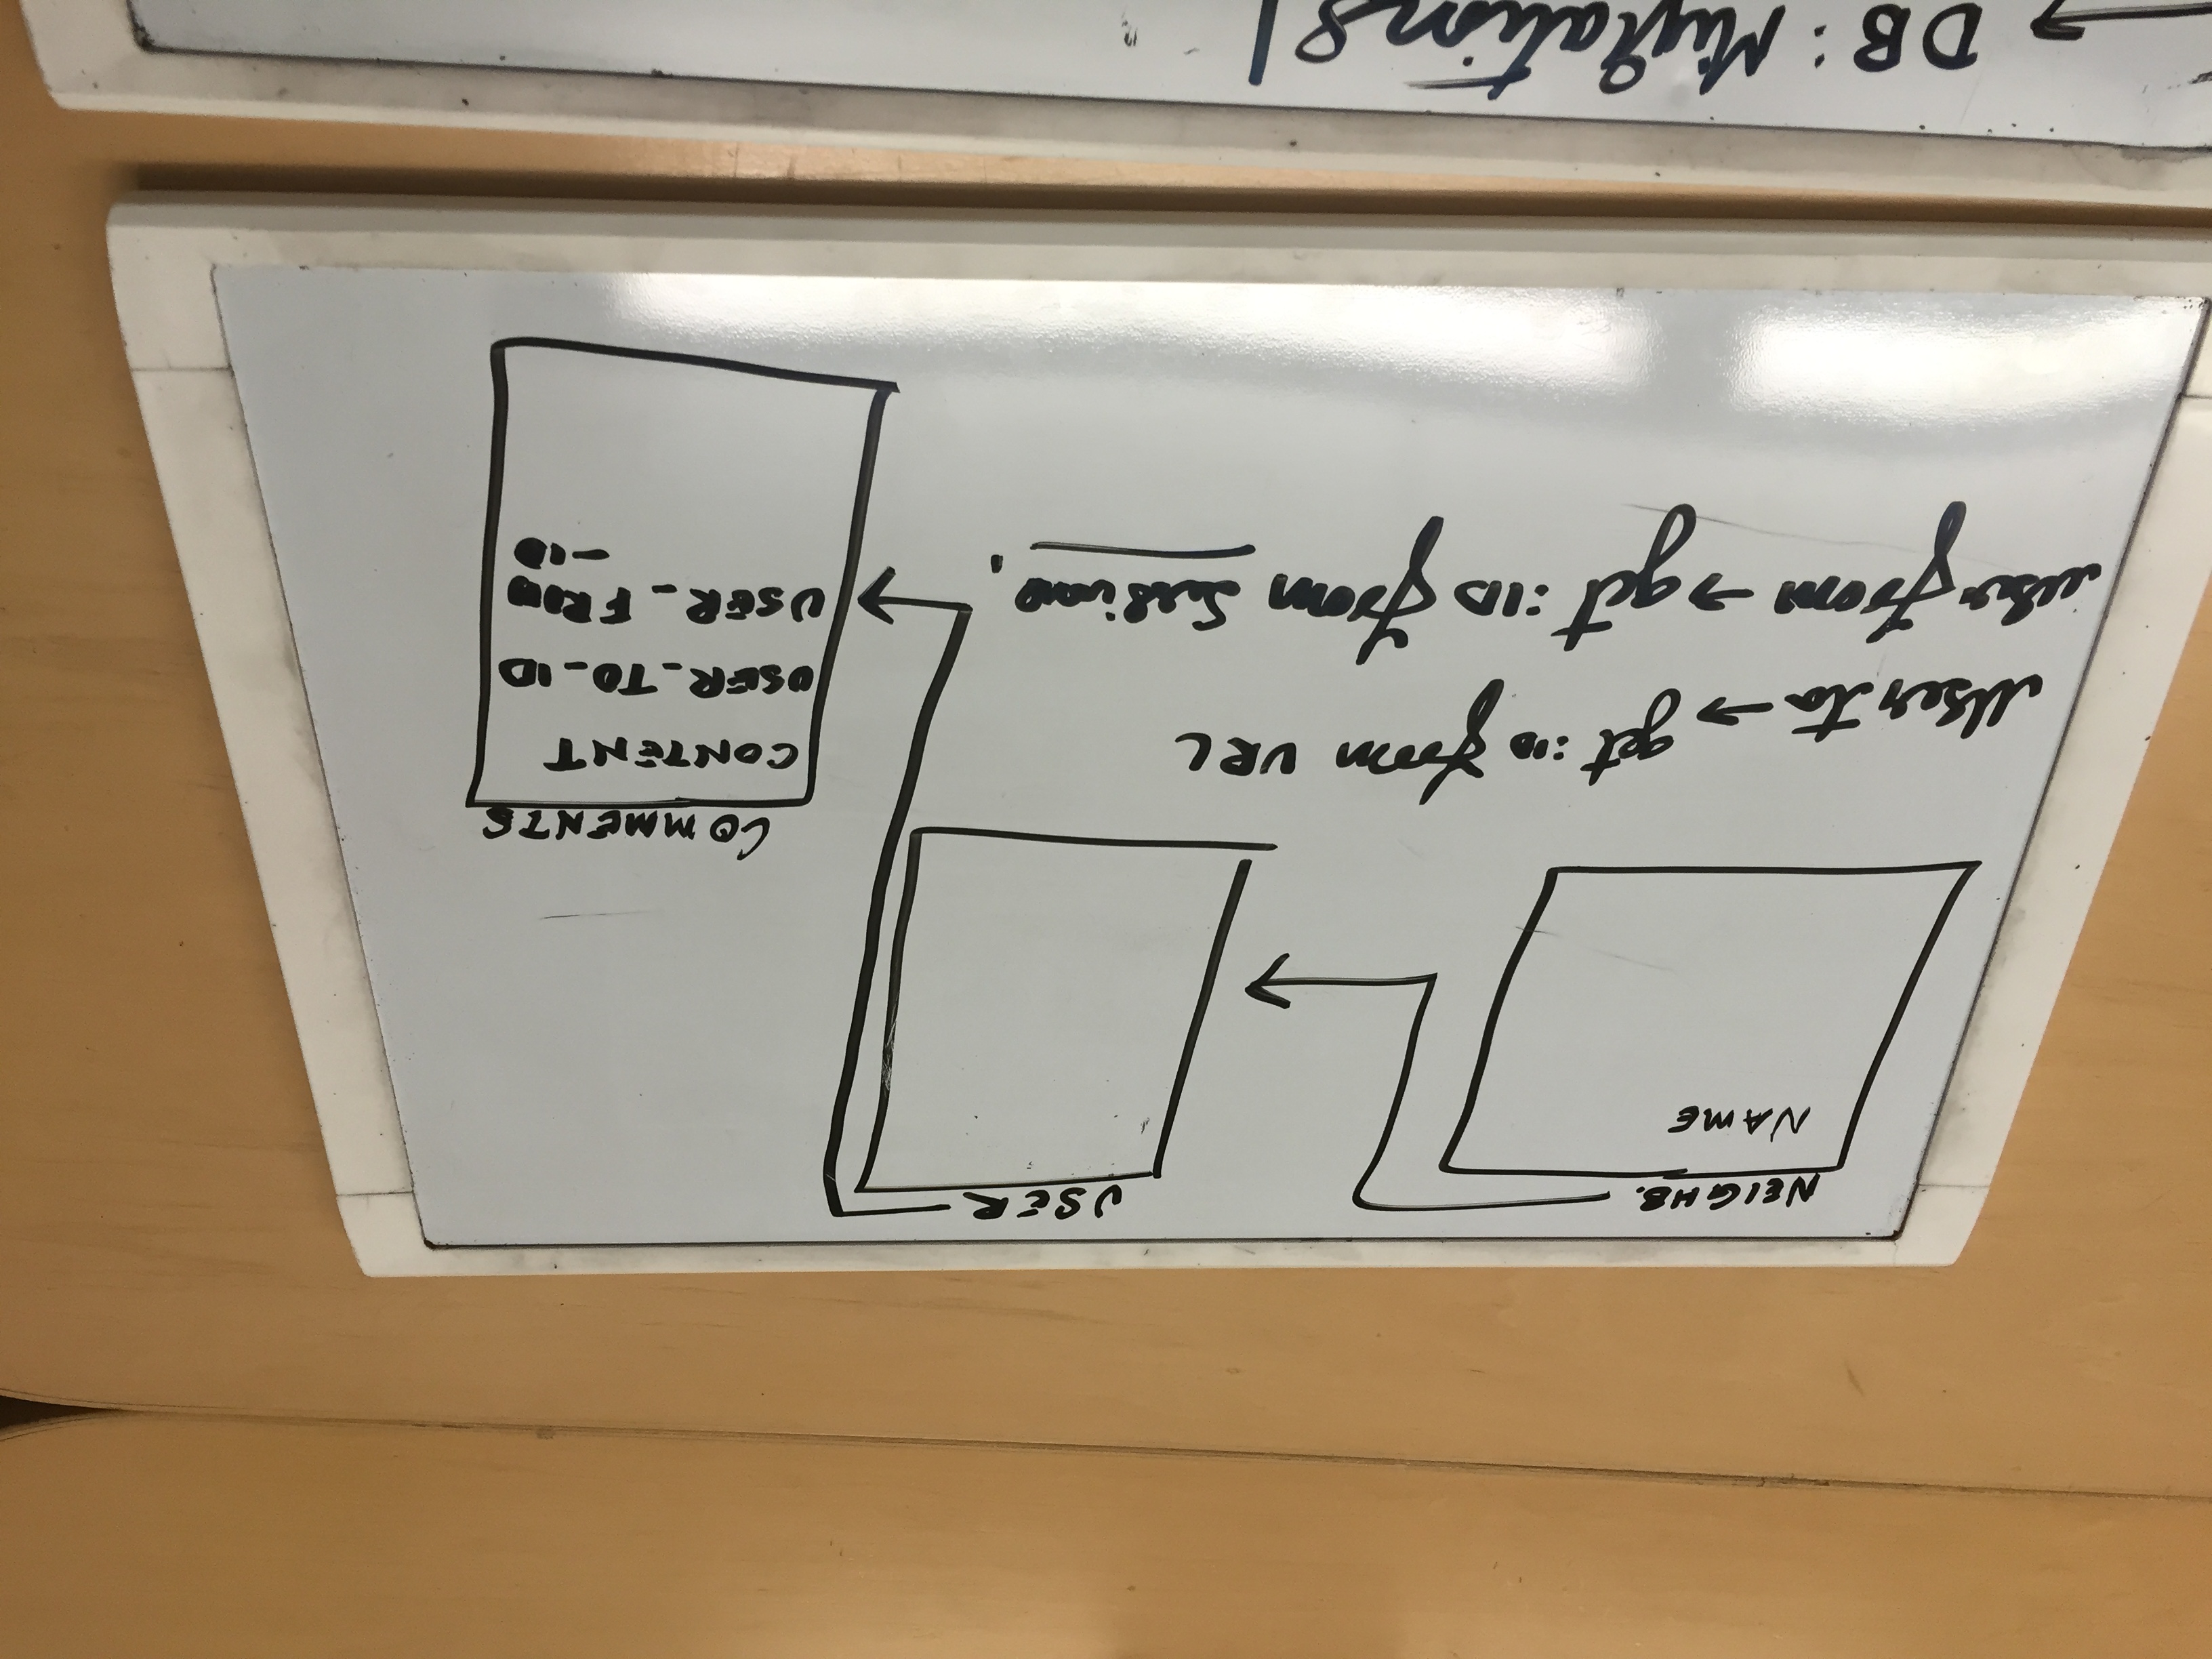 NEIGHB.
NAME
USER
COMMENTS
CONTENT
USER_TO_ID
USER_FROM
_ID
User to → get :ID from URL
user from → get :ID from Sessions.
→ DB: Migrations